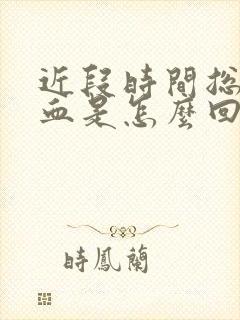 近段時間総
血是怎麼回
時鳳蘭